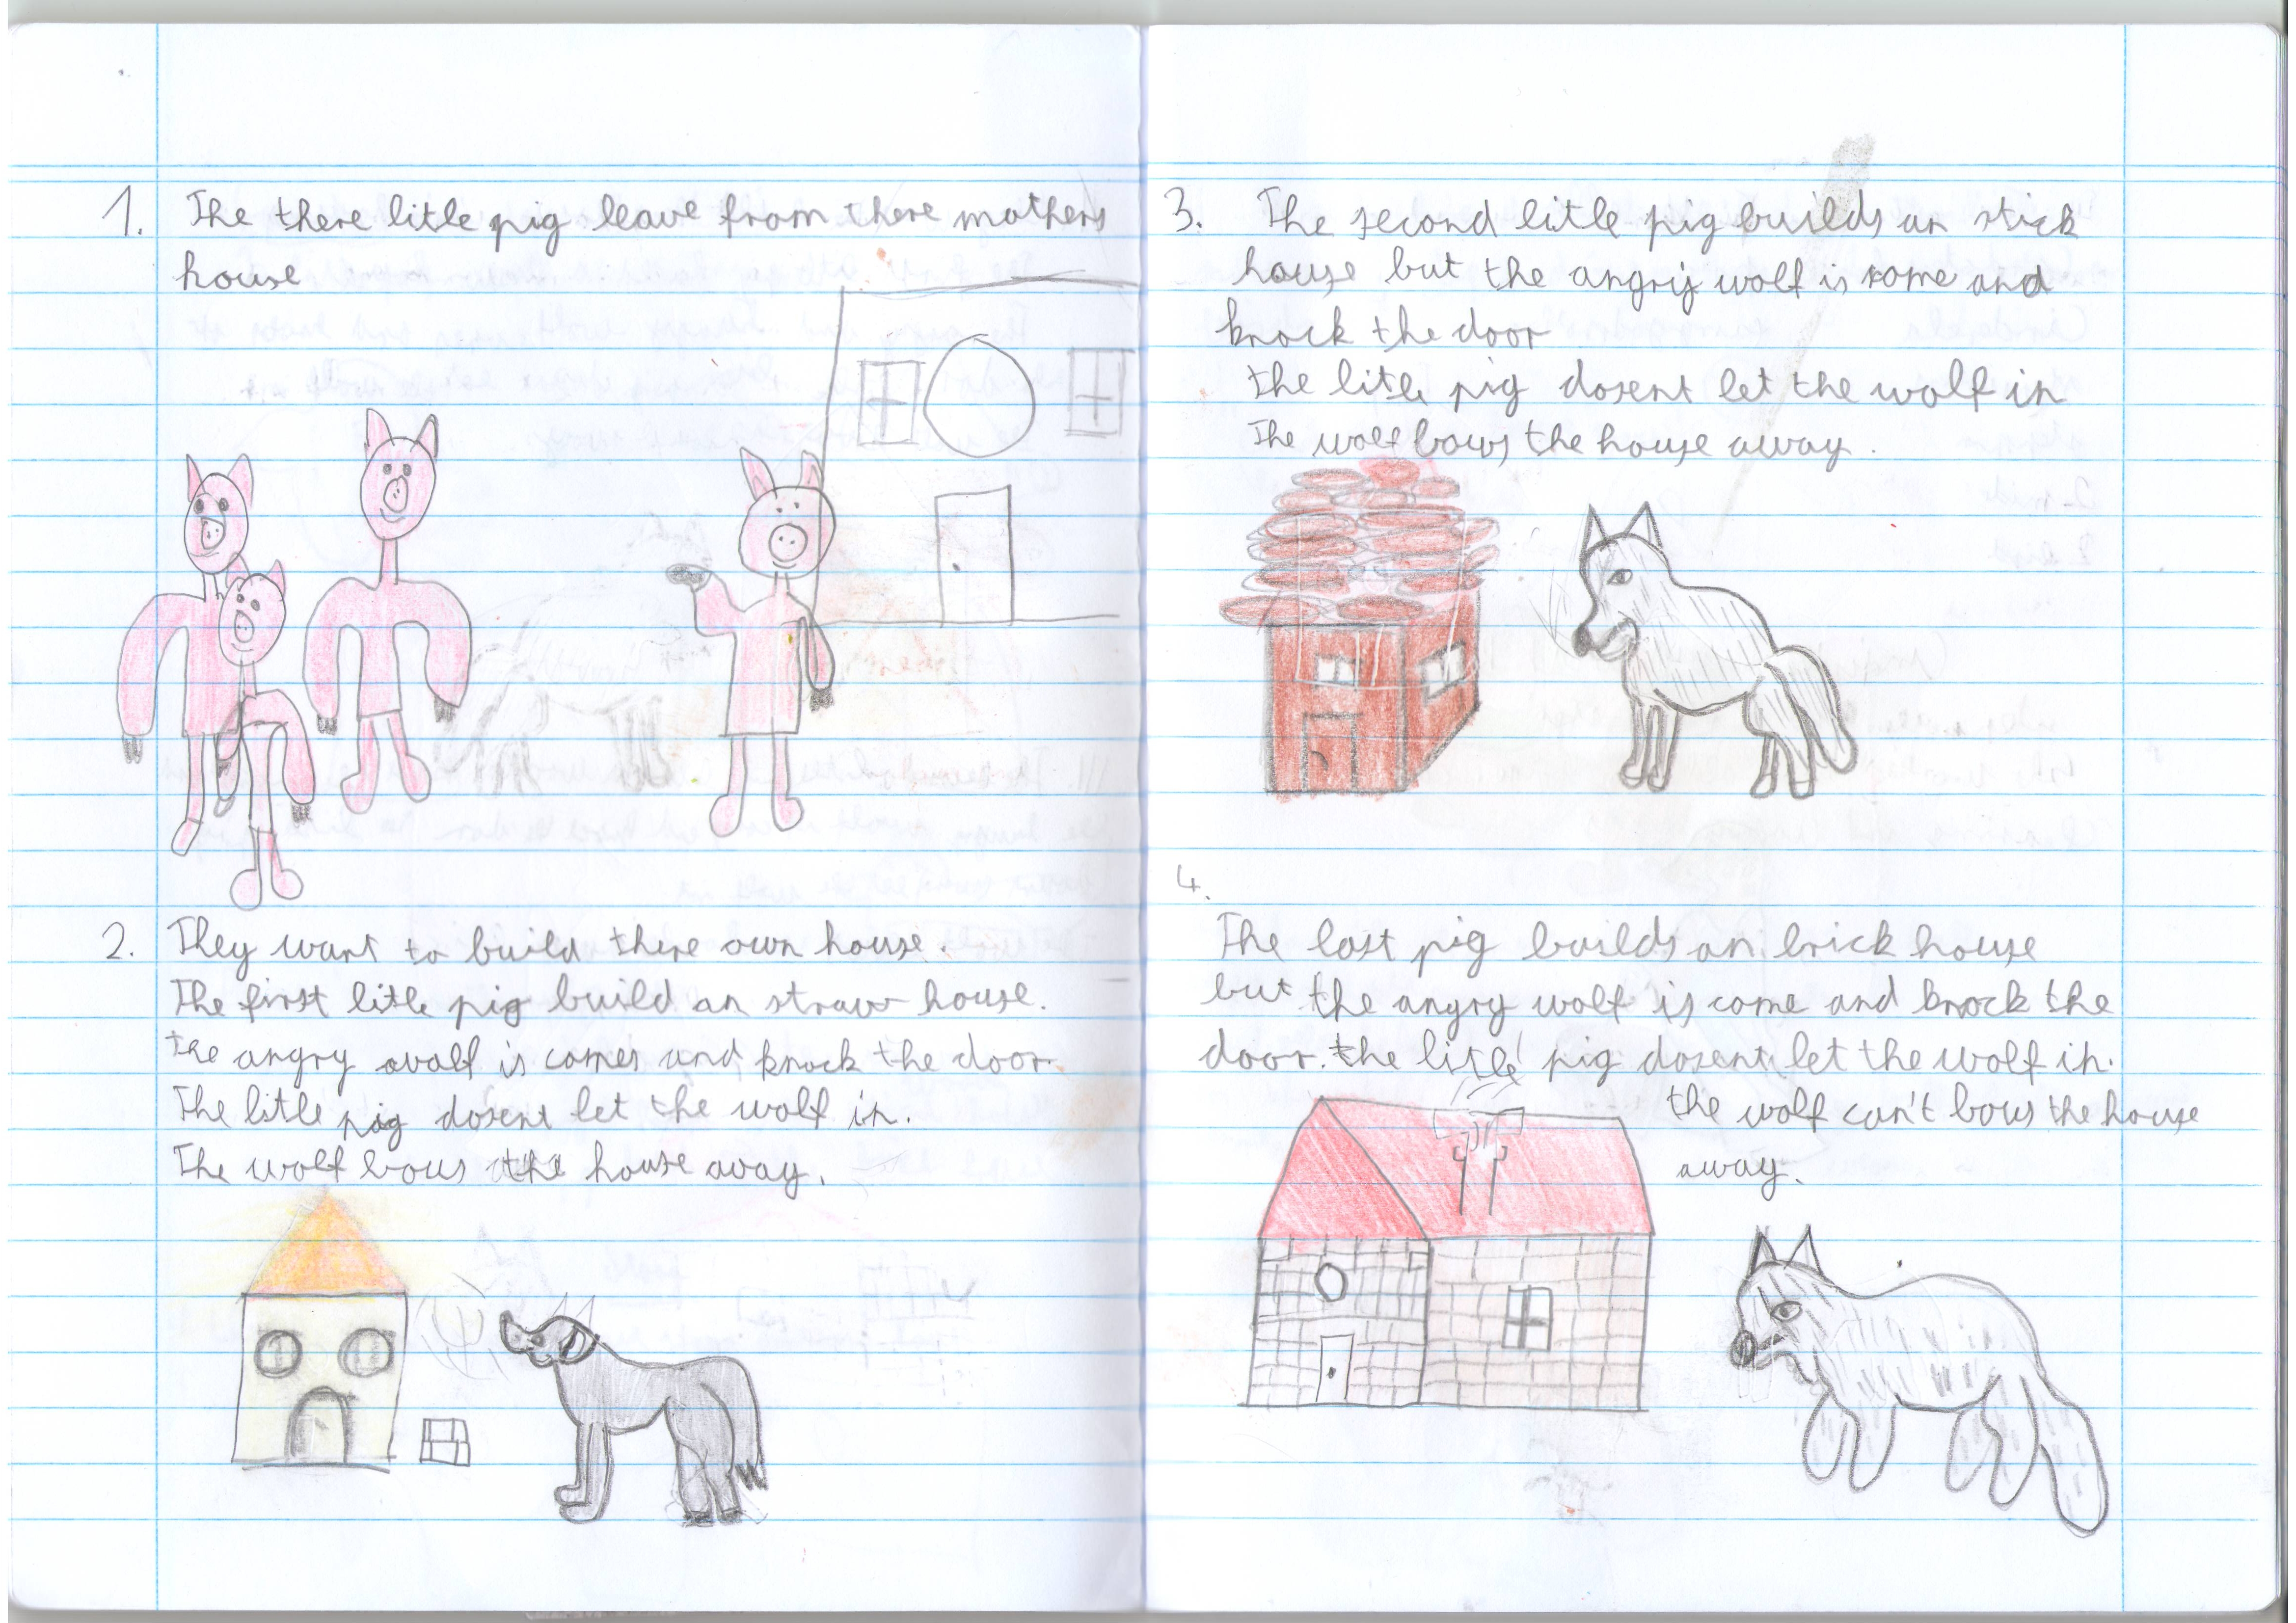 1. The there litle pig leave from there mothers
house
2. They want to build there own house.
The first litle pig build an straw house.
the angry wolf is comes and knock the door.
The litle pig dosent let the wolf in.
The wolf bows the house away.
3. The second litle pig builds an stick
house but the angry wolf is come and
knock the door
the litle pig dosent let the wolf in
The wolf bows the house away.
4.
The last pig builds an brick house
but the angry wolf is come and knock the
door. the litle pig dosent let the wolf in.
the wolf can't bows the house
away.